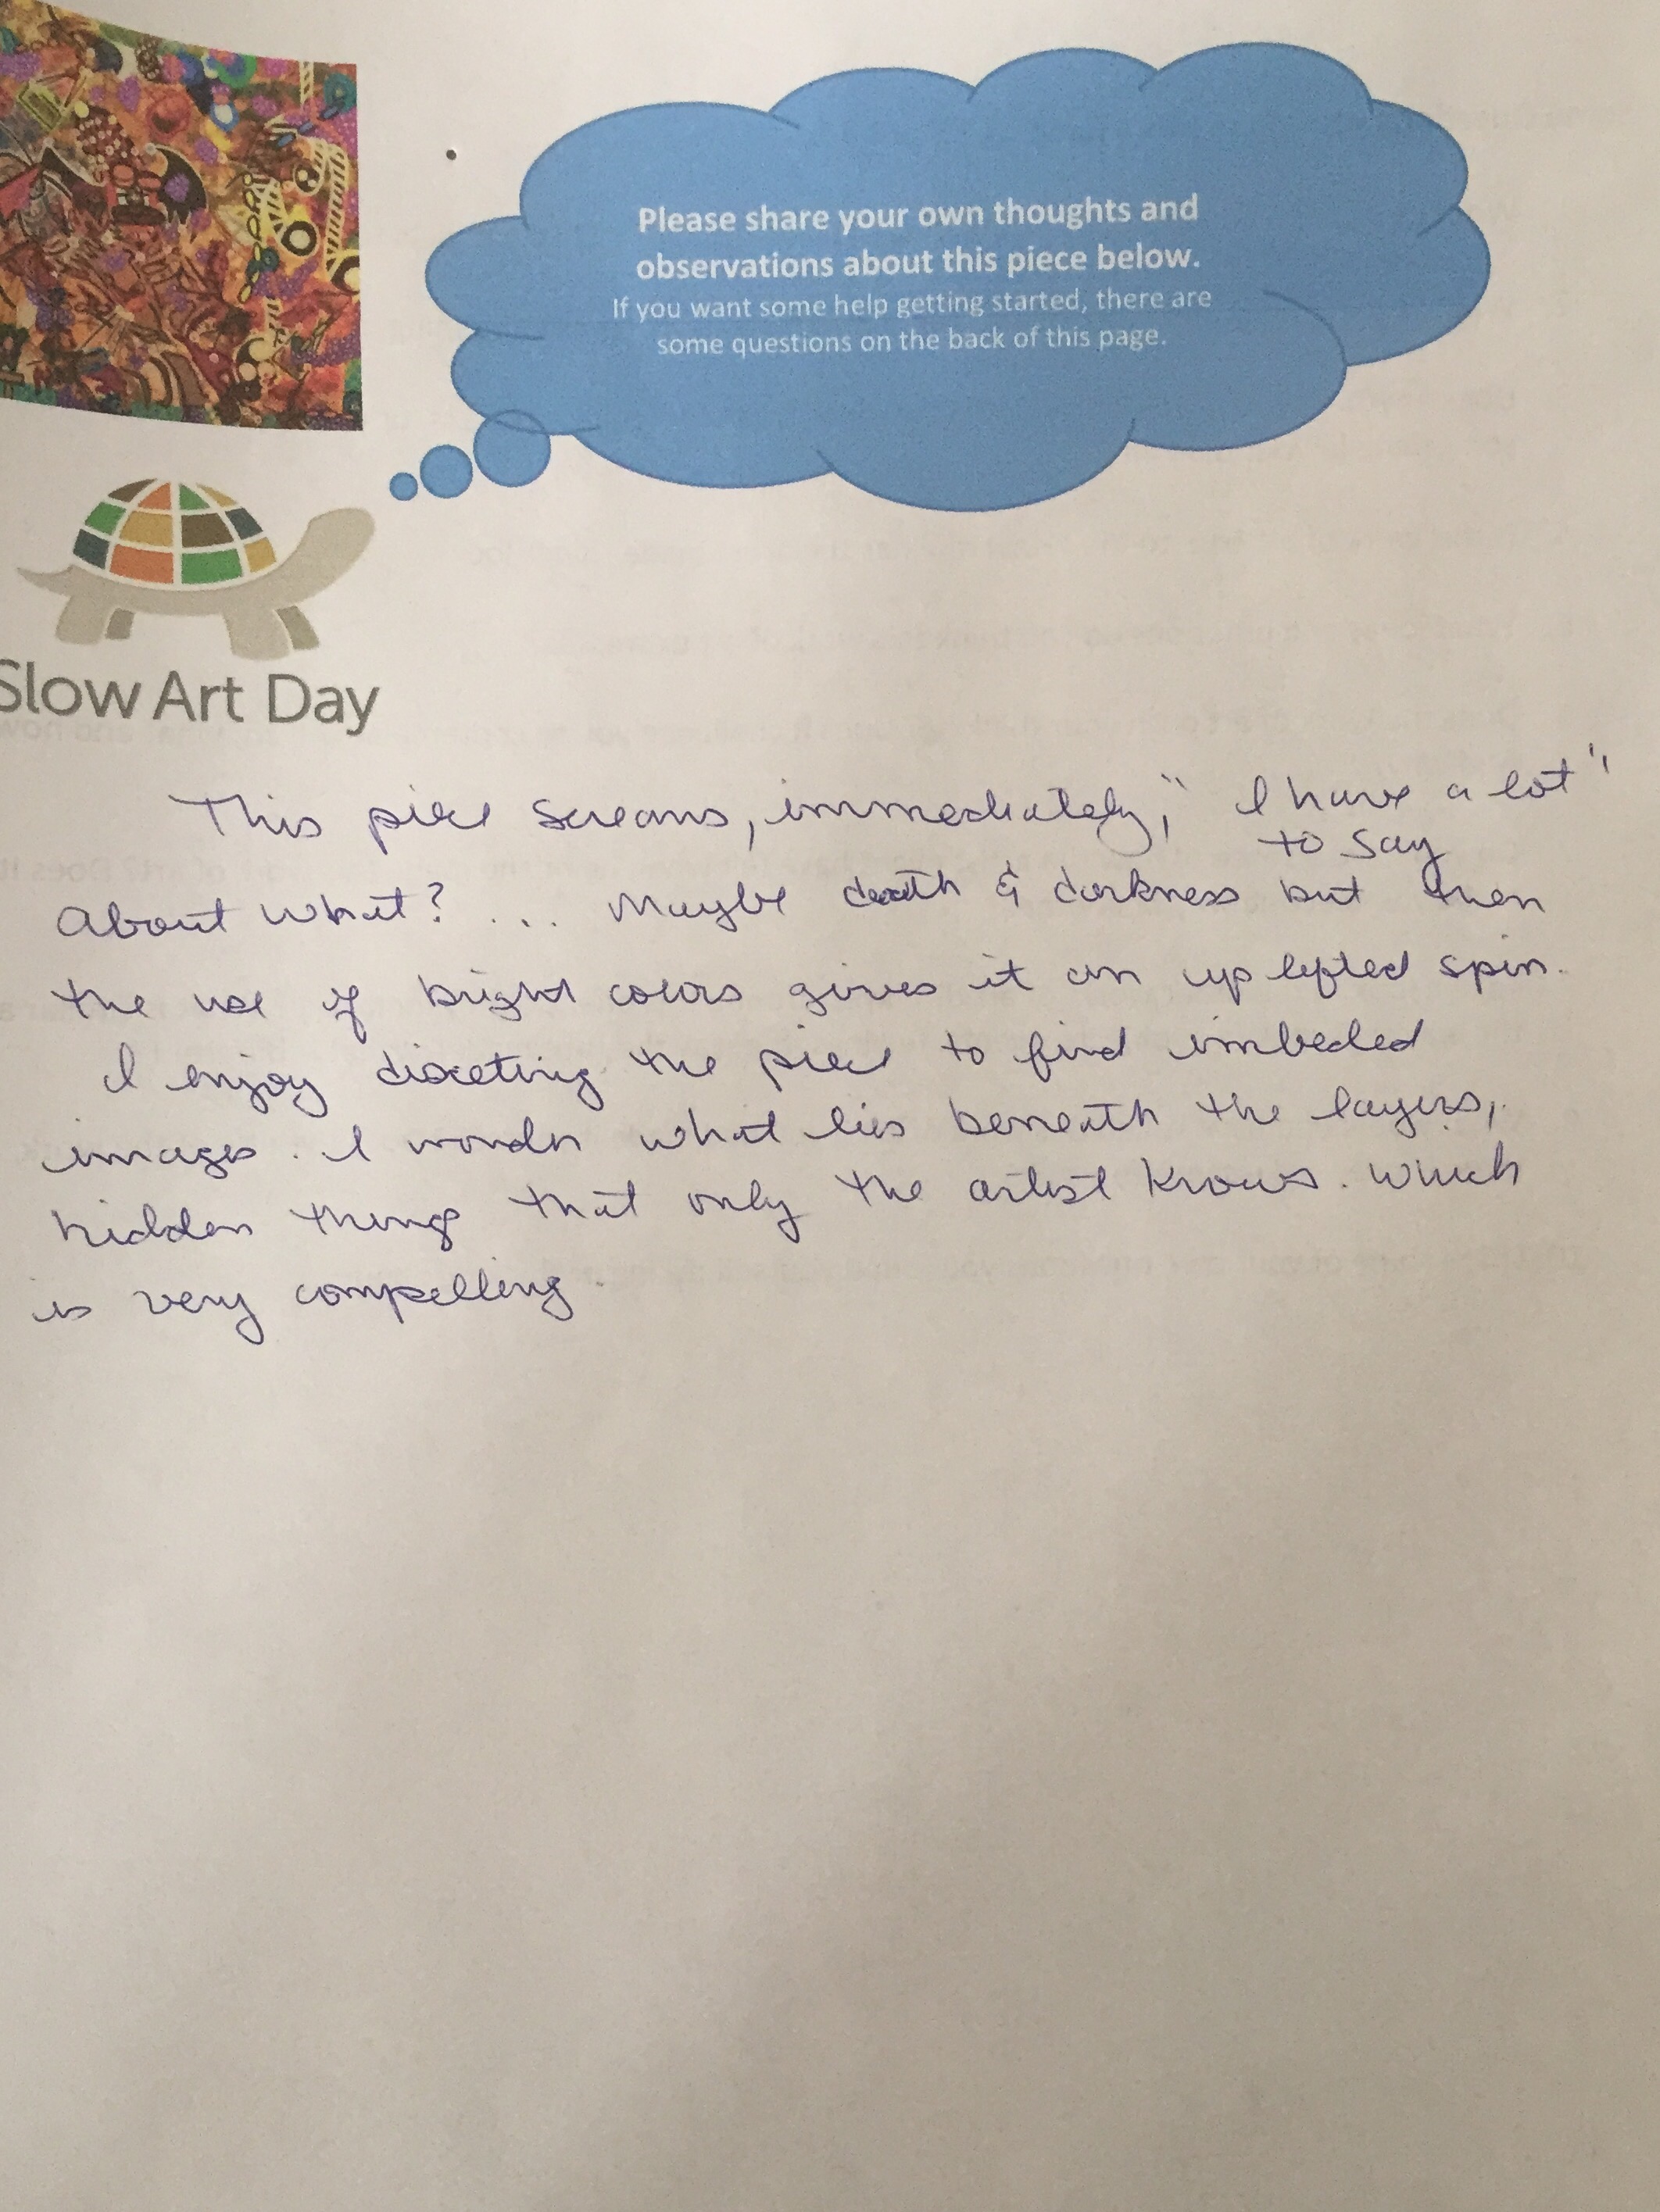 Please share your own thoughts and
observations about this piece below.
If you want some help getting started, there are
some questions on the back of this page.
Slow Art Day
This piece screams, immediately, "I have a lot"
to say
About what? ... Maybe death & darkness but then
the use of bright colors gives it an uplifted spin.
I enjoy disceting the piece to find imbeded
images. I wonder what lies beneath the layers,
hidden things that only the artist knows. Which
is very compelling.